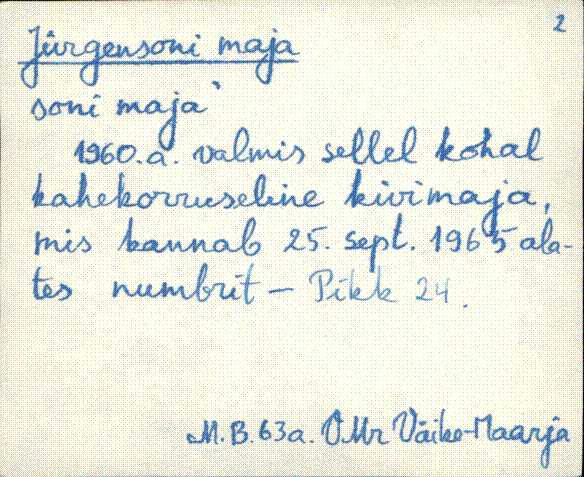 2
Jürgensoni maja
soni maja"
1960.a. valmis sellel kohal
kahekorruseline kivimaja,
mis kannab 25. sept. 1965 ala-
tes numbrit - Pikk 24.
M.B. 63a. VMr Väike-Maarja